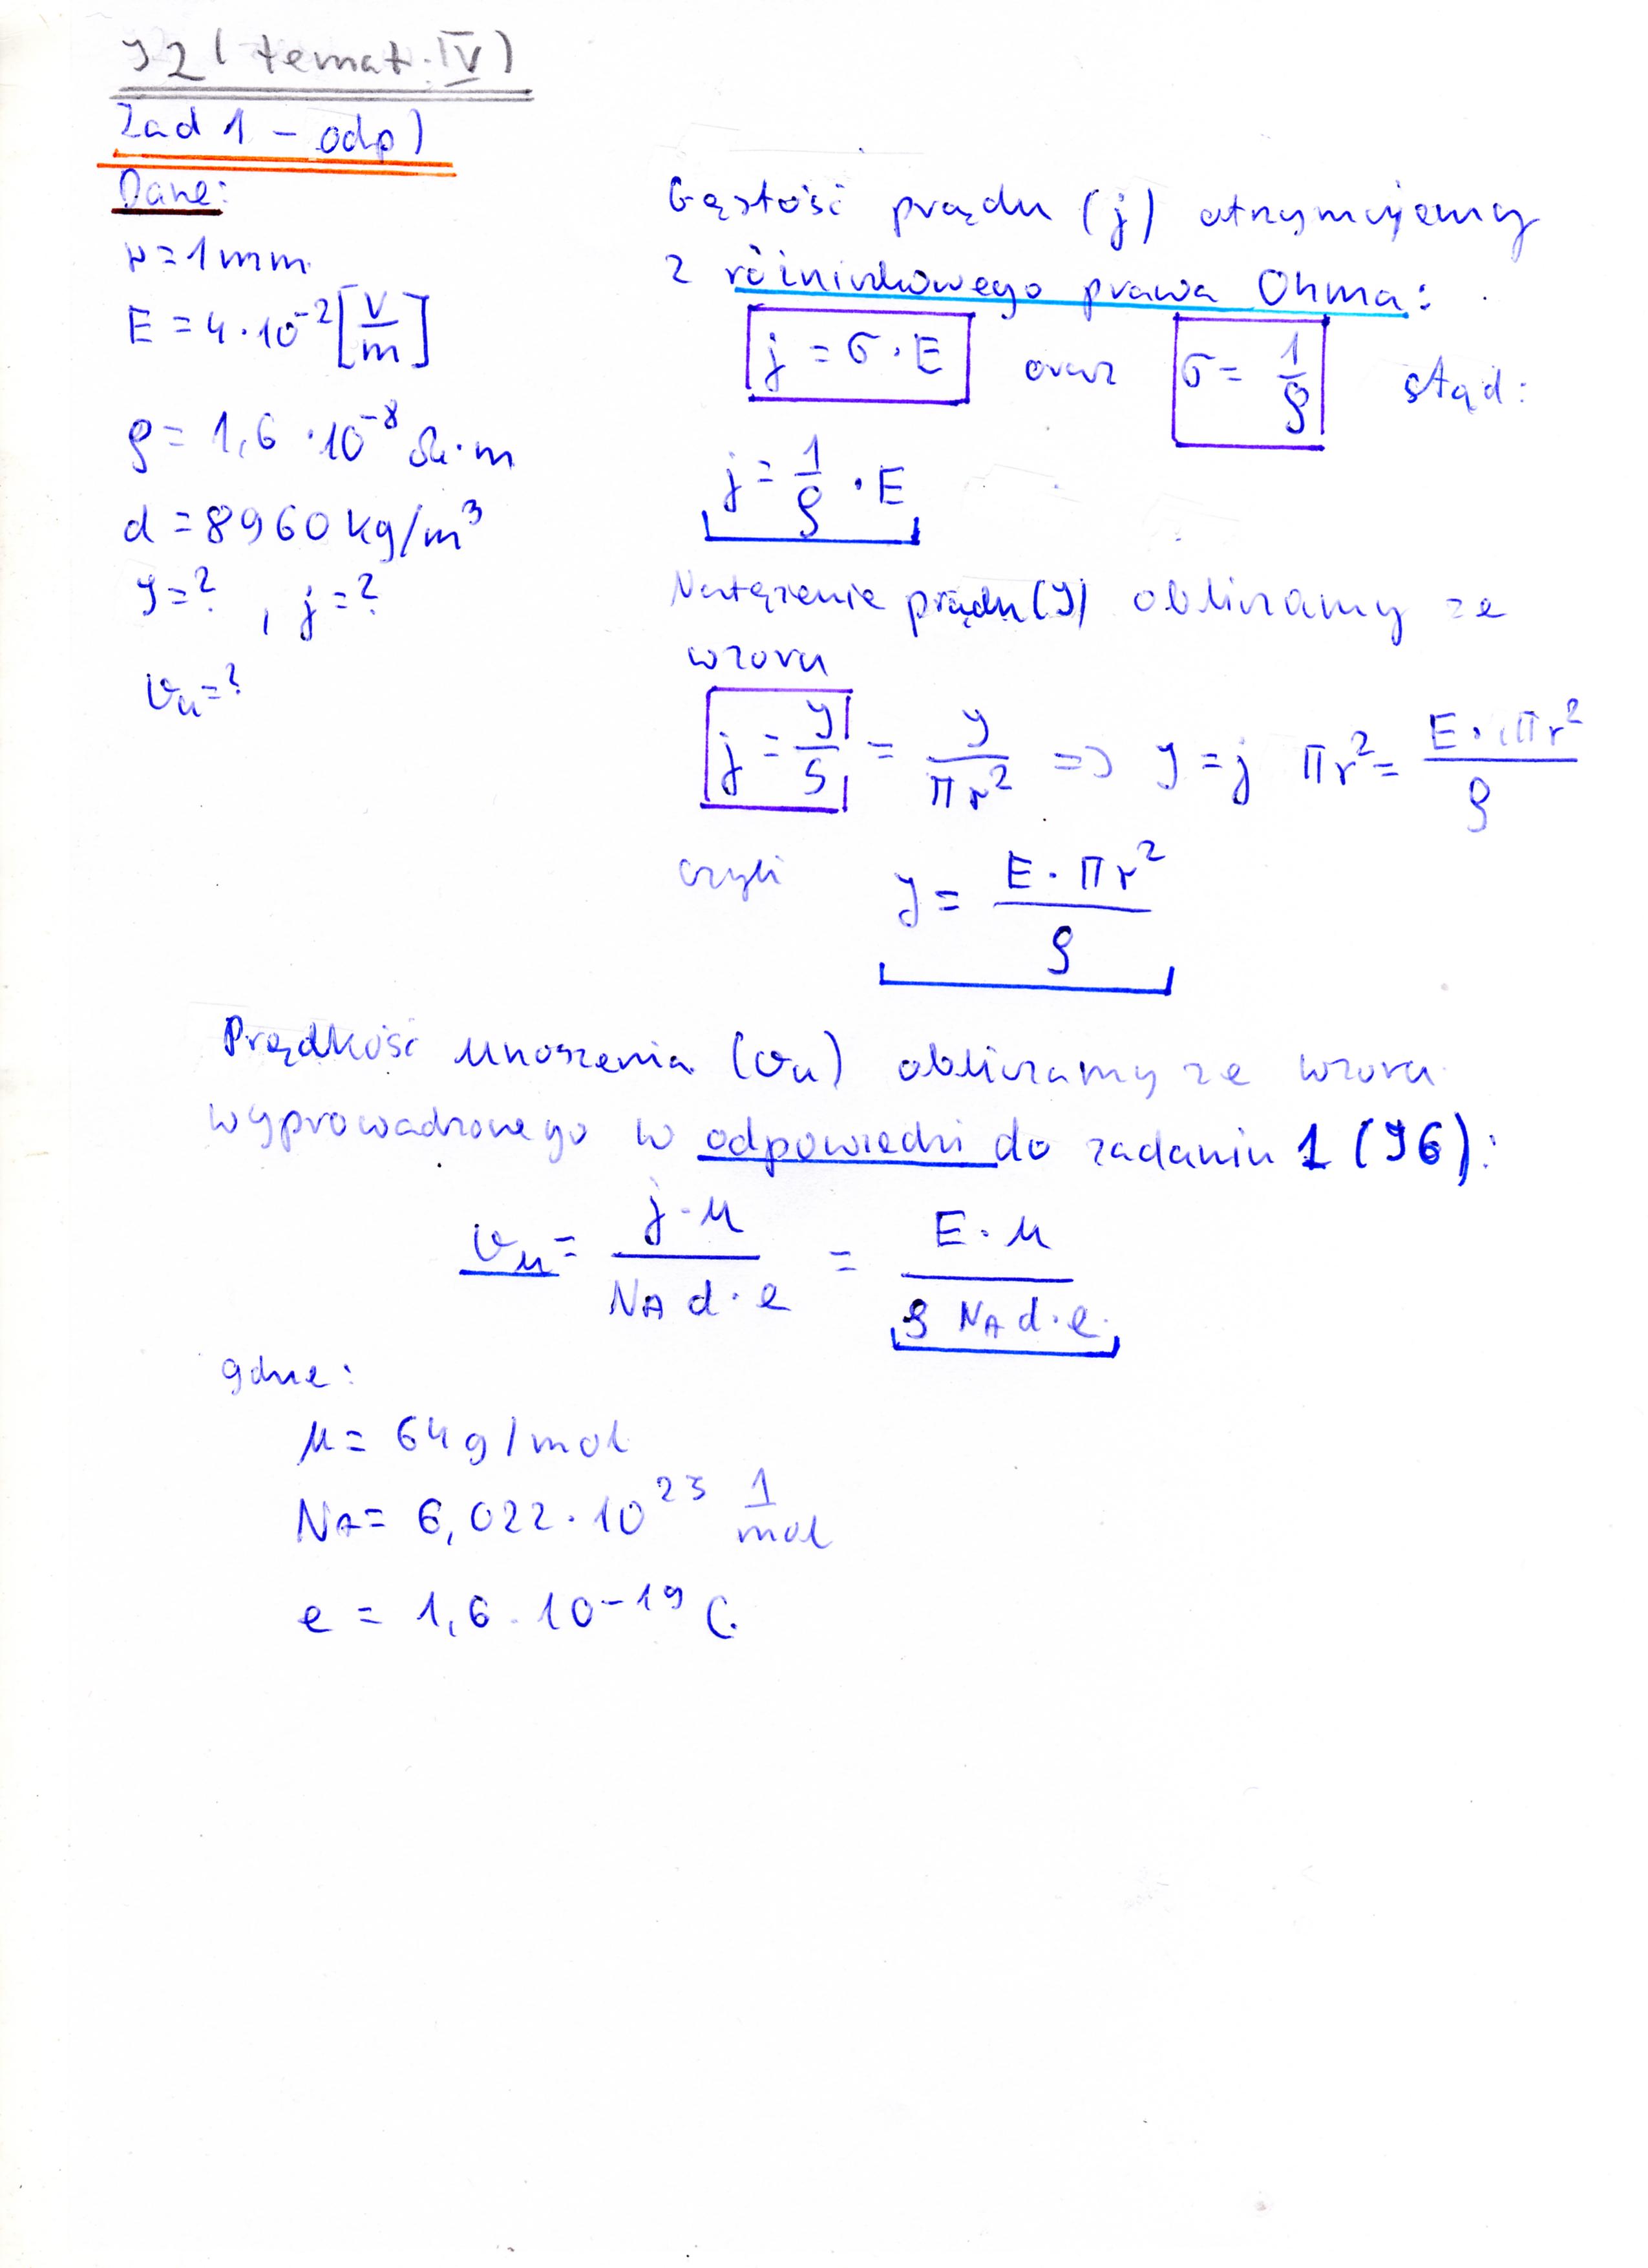 J2 (temat. IV)
Zad 1 - odp)
Dane:
r = 1 mm
E = 4 · 10⁻² [V/m]
ρ = 1,6 · 10⁻⁸ Ω · m
d = 8960 kg/m³
J = ? , j = ?
vᵤ = ?
Gęstość prądu (j) otrzymujemy
z różniczkowego prawa Ohma:
j = σ · E oraz σ = 1/ρ stąd:
j = 1/ρ · E
Natężenie prądu (J) obliczamy ze
wzoru
j = J/S = J/πr² => J = j πr² = E · πr²/ρ
czyli J = E · πr²/ρ
Prędkość unoszenia (vᵤ) obliczamy ze wzoru
wyprowadzonego w odpowiedzi do zadania 1 (J6):
vᵤ = j · μ / N_A d · e = E · μ / ρ N_A d · e
gdzie:
μ = 64 g/mol
N_A = 6,022 · 10²³ 1/mol
e = 1,6 · 10⁻¹⁹ C.